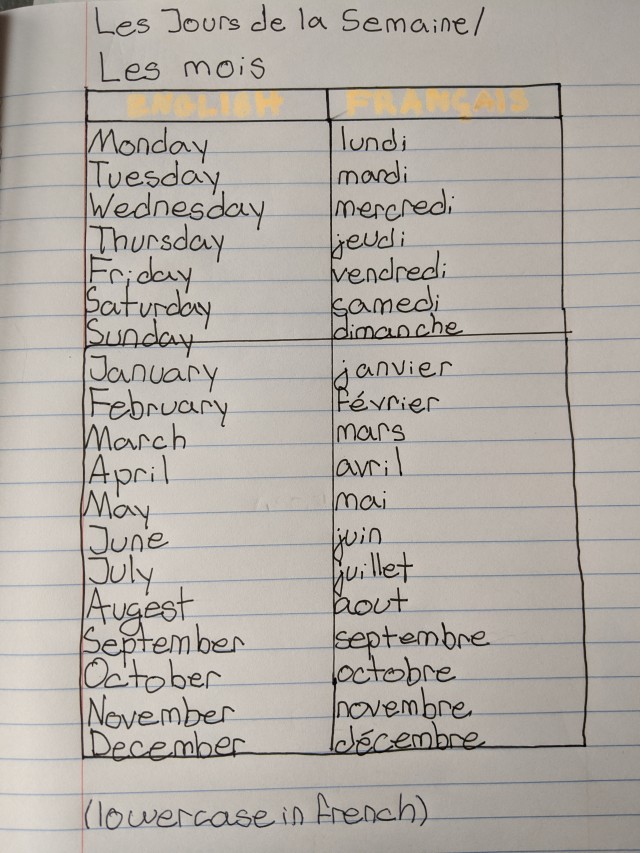 Les Jours de la Semaine/
Les mois
ENGLISH FRANÇAIS
Monday lundi
Tuesday mardi
Wednesday mercredi
Thursday jeudi
Friday vendredi
Saturday samedi
Sunday dimanche
January janvier
February février
March mars
April avril
May mai
June juin
July juillet
Augest aout
September septembre
October octobre
November novembre
December décembre
(lowercase in french)